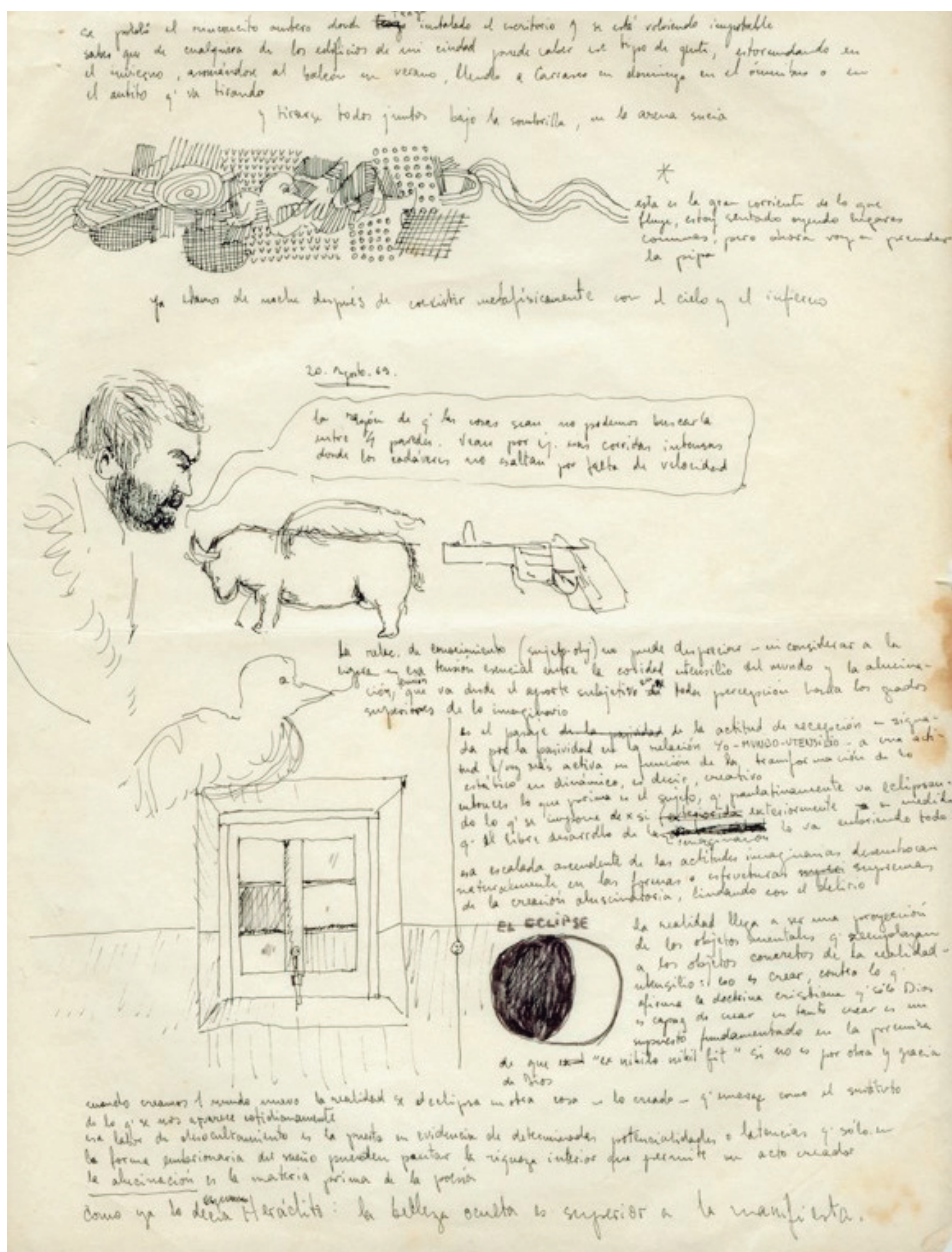 se pobló el rinconcito austero donde tengo instalado el escritorio y se está volviendo improbable
saber que de cualquiera de los edificios de mi ciudad puede caber ese tipo de gente, estornudando en
el invierno, asomándose al balcón en verano, llendo a Carrasco en domingo en el ómnibus o en
el autito q' va tirando
y tirarse todos juntos bajo la sombrilla, en la arena sucia
*
esta es la gran corriente de lo que
fluye, estoy sentado oyendo lugares
comunes, pero ahora voy a prender
la pipa
ya estamos de noche después de coexistir metafísicamente con el cielo y el infierno
20. Agosto. 69.
la razón de q' las cosas sean, no podemos buscarla
entre 4 paredes. Vean por ej. esas corridas intensas
donde los cadáveres no saltan por falta de velocidad
La relac. de conocimiento (sujeto-obj) no puede despreciar - ni considerar a la
en esa tensión esencial entre la cosidad utensilio del mundo y la alucina-
ción, que va desde el aporte subjetivo en toda percepción hasta los grados
superiores de lo imaginario
es el pasaje de la pasividad de la actitud de recepción - signa-
da por la pasividad en la relación YO-MUNDO-UTENSILIO - a una acti-
tud c/vez más activa en función de la transformación de lo
estático en dinámico, es decir, creativo
entonces lo que prima es el sujeto, q' paulatinamente va eclipsan-
do lo q' se impone de x si exteriormente a medida
q. el libre desarrollo de la imaginación lo va cubriendo todo
esa escalada ascendente de las actitudes imaginarias desembocan
naturalmente en las formas o estructuras supremas
de la creación alucinatoria, lindando con el delirio
EL ECLIPSE
la realidad llega a ser una proyección
de los objetos mentales q' reemplazan
a los objetos concretos de la realidad-
utensilio: eso es crear, contra lo q'
afirma la doctrina cristiana q' sólo Dios
es capaz de crear en tanto crear es un
supuesto fundamentado en la premisa
de que "ex nihilo nihil fit" si no es por obra y gracia
de Dios
cuando creamos 1 mundo nuevo la realidad se eclipsa en otra cosa - lo creado - q' emerge como el sustituto
de lo q' se nos aparece cotidianamente
esa labor de desocultamiento es la puesta en evidencia de determinadas potencialidades o latencias q' sólo en
la forma embrionaria del sueño pueden pautar la riqueza interior que permite un acto creador
la alucinación es la materia prima de la poesía
como ya lo decía Heráclito: la belleza oculta es superior a la manifiesta.